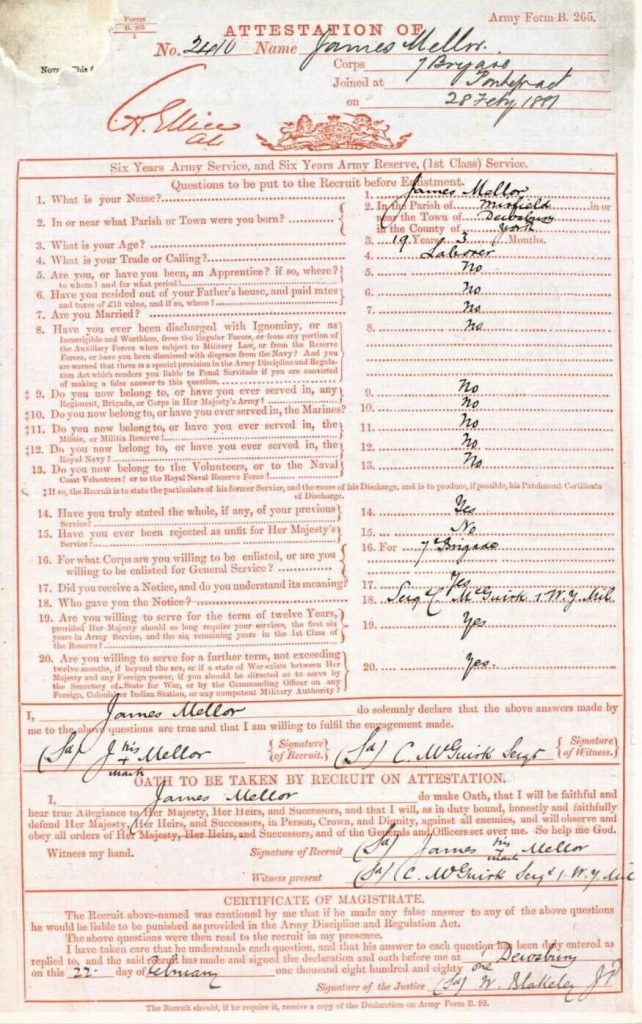 Forms
B. 265
1
Army Form B. 265.
ATTESTATION OF
No. 2410 Name James Mellor.
Note: This
Corps 7 Brigade
Joined at Pontefract
on 28 Feby 1881
Six Years Army Service, and Six Years Army Reserve, (1st Class) Service.
Questions to be put to the Recruit before Enlistment.
1. What is your Name? 1. James Mellor
2. In or near what Parish or Town were you born? 2. In the Parish of Mirfield in or
near the Town of Dewsbury
in the County of York
3. What is your Age? 3. 19 Years 3 Months.
4. What is your Trade or Calling? 4. Laborer
5. Are you, or have you been, an Apprentice? if so, where? 5. No
to whom? and for what period?
6. Have you resided out of your Father's house, and paid rates 6. No
and taxes of £10 value, and if so, where?
7. Are you Married? 7. No
8. Have you ever been discharged with Ignominy, or as 8. No
Incorrigible and Worthless, from the Regular Forces, or from any portion of
the Auxiliary Forces when subject to Military Law, or from the Reserve
Forces, or have you been dismissed with disgrace from the Navy? And you
are warned that there is a special provision in the Army Discipline and Regula-
tion Act which renders you liable to Penal Servitude if you are convicted
of making a false answer to this question.
‡ 9. Do you now belong to, or have you ever served in, any 9. No
Regiment, Brigade, or Corps in Her Majesty's Army?
‡10. Do you now belong to, or have you ever served in, the Marines? 10. No
‡11. Do you now belong to, or have you ever served in, the 11. No
Militia, or Militia Reserve?
‡12. Do you now belong to, or have you ever served in, the 12. No
Royal Navy?
13. Do you now belong to the Volunteers, or to the Naval 13. No
Coast Volunteers? or to the Royal Naval Reserve Force?
‡If so, the Recruit is to state the particulars of his former Service, and the cause of his Discharge, and is to produce, if possible, his Parchment Certificate
of Discharge.
14. Have you truly stated the whole, if any, of your previous 14. Yes
Service?
15. Have you ever been rejected as unfit for Her Majesty's 15. No
Service?
16. For what Corps are you willing to be enlisted, or are you 16. For 7 Brigade
willing to be enlisted for General Service?
17. Did you receive a Notice, and do you understand its meaning? 17. Yes
18. Who gave you the Notice? 18. Sergt C. McGuirk 1. W. Y. Mil.
19. Are you willing to serve for the term of twelve Years, 19. Yes
provided Her Majesty should so long require your services, the first six
years in Army Service, and the six remaining years in the 1st Class of
the Reserve?
20. Are you willing to serve for a further term, not exceeding 20. Yes.
twelve months, if beyond the seas, or if a state of War exists between Her
Majesty and any Foreign power, if you should be directed so to serve by
the Secretary of State for War, or by the Commanding Officer on any
Foreign, Colonial or Indian Station, or any competent Military Authority?
I, James Mellor do solemnly declare that the above answers made by
me to the above questions are true and that I am willing to fulfil the engagement made.
(Sd) J his + mark Mellor {Signature of Recruit.} (Sd) C. McGuirk Sergt {Signature of Witness.}
OATH TO BE TAKEN BY RECRUIT ON ATTESTATION.
I, James Mellor do make Oath, that I will be faithful and
bear true Allegiance to Her Majesty, Her Heirs, and Successors, and that I will, as in duty bound, honestly and faithfully
defend Her Majesty, Her Heirs, and Successors, in Person, Crown, and Dignity, against all enemies, and will observe and
obey all orders of Her Majesty, Her Heirs, and Successors, and of the Generals and Officers set over me. So help me God.
Witness my hand. Signature of Recruit (Sd) James his + mark Mellor
Witness present (Sd) C. McGuirk Sergt 1. W. Y. Mil
CERTIFICATE OF MAGISTRATE.
The Recruit above-named was cautioned by me that if he made any false answer to any of the above questions
he would be liable to be punished as provided in the Army Discipline and Regulation Act.
The above questions were then read to the recruit in my presence.
I have taken care that he understands each question, and that his answer to each question has been duly entered as
replied to, and the said recruit has made and signed the declaration and oath before me at Dewsbury
on this 22. day of February one thousand eight hundred and eighty one
Signature of the Justice (Sd) W. Blakeley JP
The Recruit should, if he require it, receive a copy of the Declaration on Army Form B. 92.